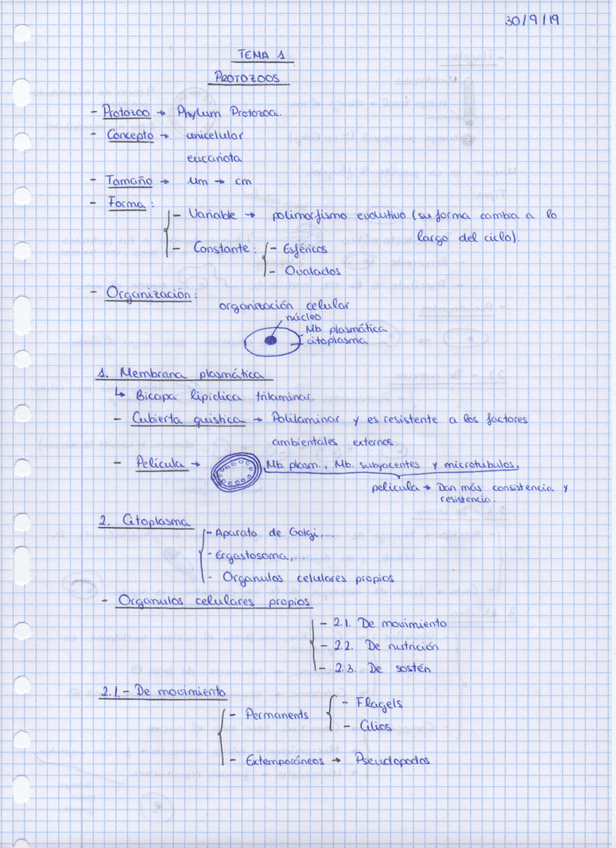 30/9/19
TEMA 1
PROTOZOOS
- Protozoo → Phylum Protozoa.
- Concepto → unicelular
eucariota
- Tamaño → um → cm
- Forma:
- Variable → polimorfismo evolutivo (su forma cambia a lo
largo del ciclo).
- Constante: - Esféricos
- Ovalados
- Organización:
organización celular
núcleo
Mb plasmática
citoplasma
1. Membrana plasmática
↳ Bicapa lipídica trilaminar.
- Cubierta quística → Polilaminar y es resistente a los factores
ambientales externos.
- Película → Mb. plasm., Mb. subyacentes y microtúbulos,
película → Dan más consistencia y
resistencia.
2. Citoplasma
- Aparato de Golgi,...
- Ergastosoma,...
- Organulos celulares propios
- Organulos celulares propios
- 2.1. De movimiento
- 2.2. De nutrición
- 2.3. De sostén
2.1.- De movimiento
- Permanents - Flagels
- Cilios
- Extemporáneos → Pseudopodos